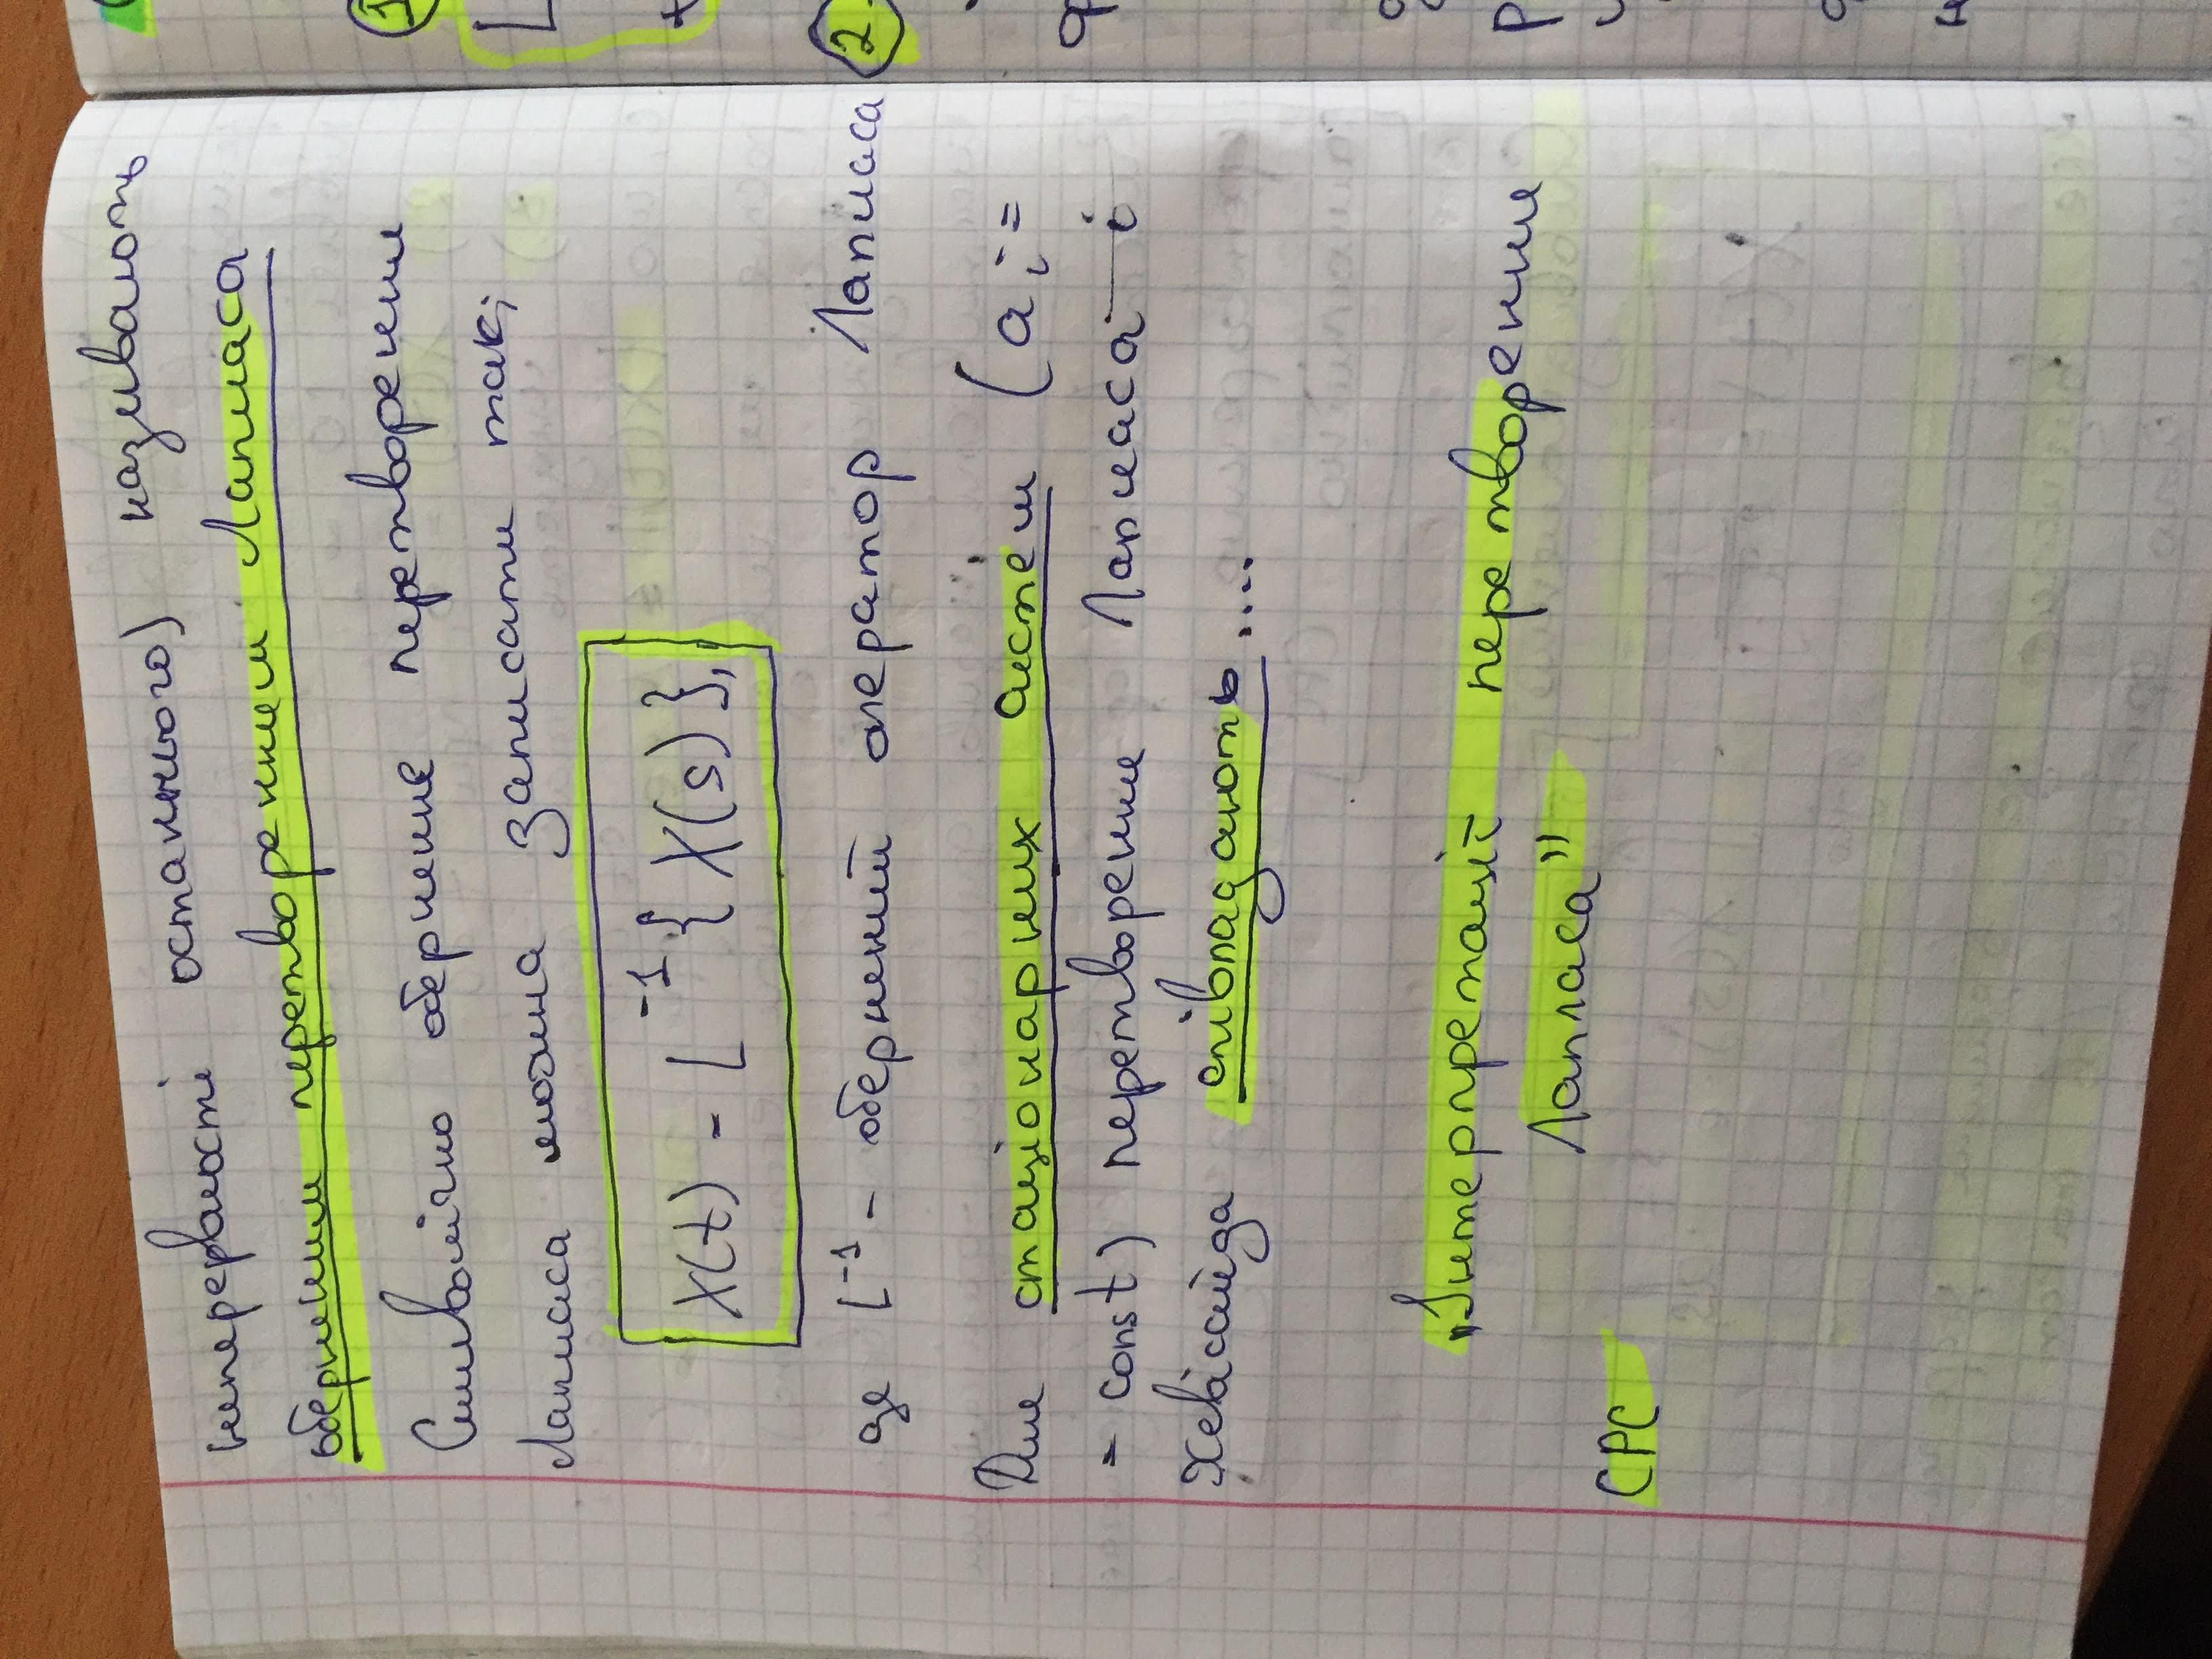 неперервності останнього) називають
оберненим перетворенням Лапласа
Символічно обернене перетворення
Лапласа можна записати так;
X(t) - L⁻¹{X(s)},
де L⁻¹ - обернений оператор Лапласа
Для стаціонарних систем (aᵢ =
= const) перетворення Лапласа і
Хевісайда співпадають....
„Інтерпретації перетворення
Лапласа”
СРС
1
2.